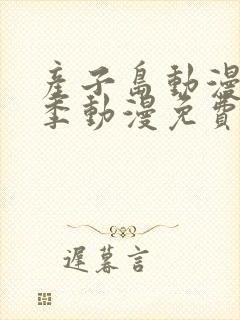 産子島動漫
季動漫免費
遲暮言